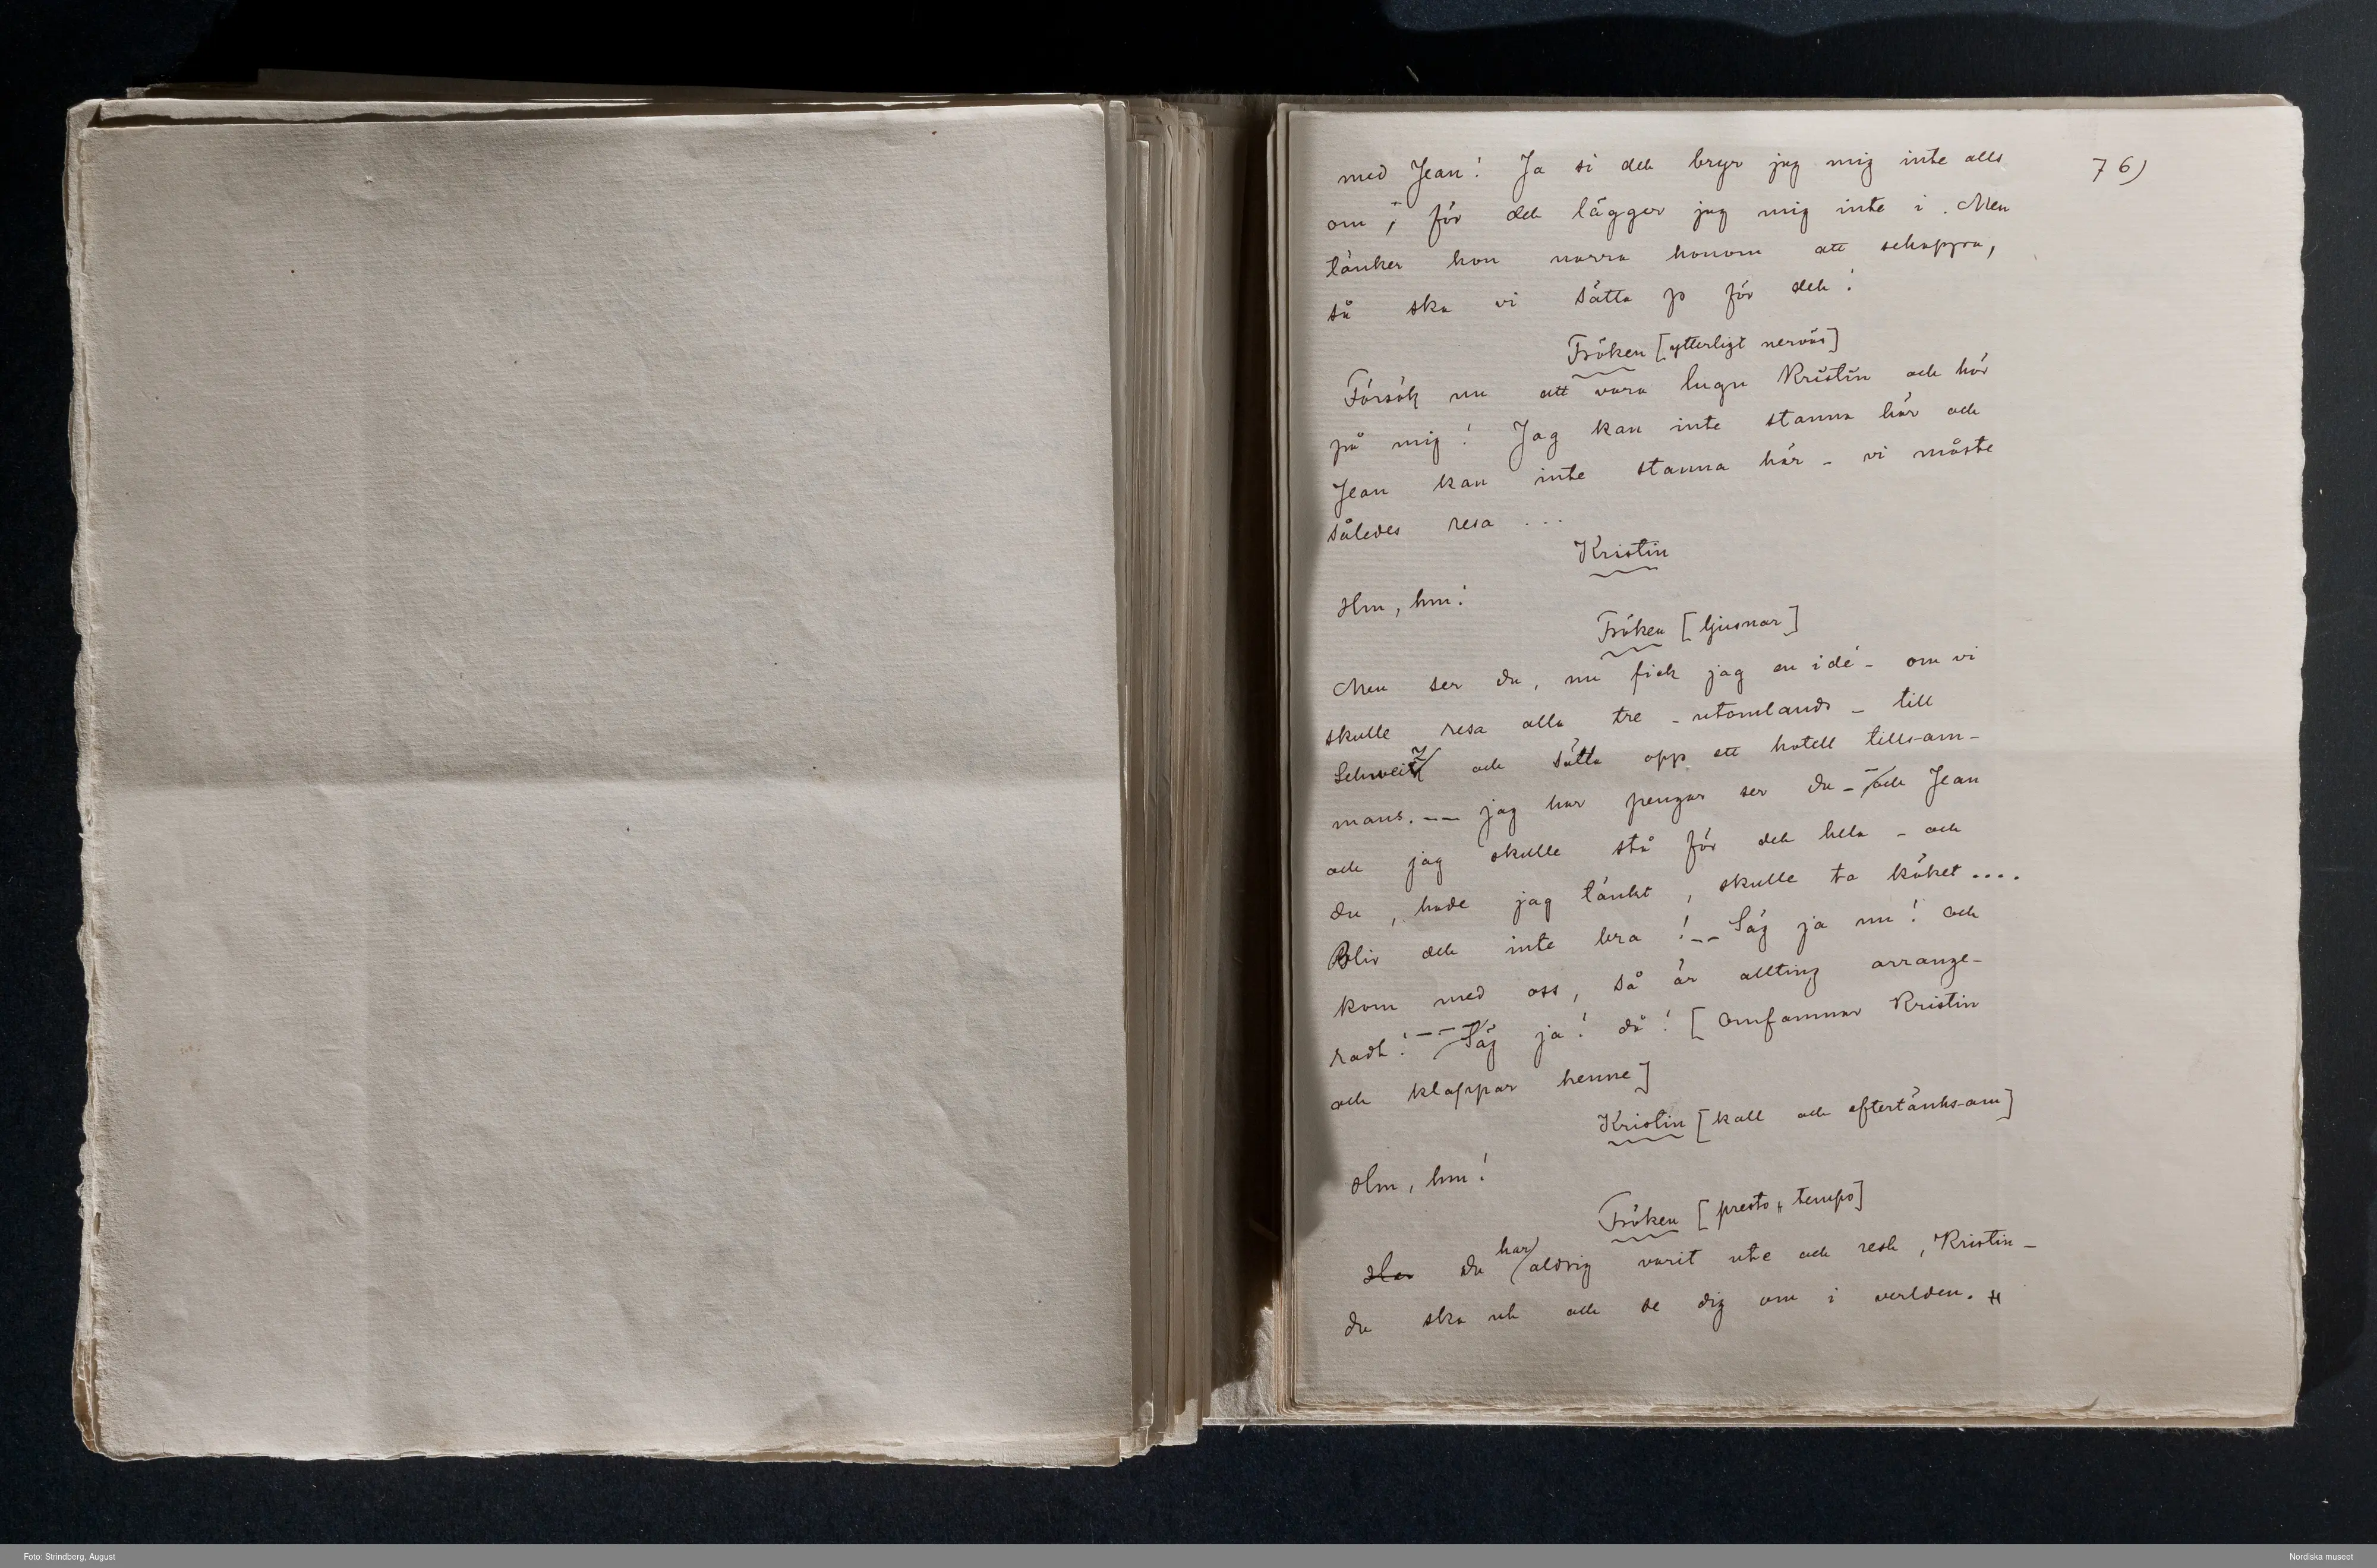 76)
med Jean! Ja si det bryr jag mig inte alls
om; för det lägger jag mig inte i. Men
tänker hon narra honom att schappa,
så ska vi sätta p för det!
Fröken [ytterligt nervös]
Försök nu att vara lugn Kristin och hör
på mig! Jag kan inte stanna här och
Jean kan inte stanna här – vi måste
således resa ...
Kristin
Hm, hm!
Fröken [ljusnar]
Men ser du, nu fick jag en idé – om vi
skulle resa alla tre – utomlands – till
Schweiz och sätta opp ett hotell tillsam-
mans. – – jag har pengar ser du – – och Jean
och jag skulle stå för det hela – och
du, hade jag tänkt, skulle ta köket ....
Blir det inte bra! – – Säg ja nu! och
kom med oss, så är allting arrange-
radt! – – – Säg ja! då! [Omfamnar Kristin
och klappar henne]
Kristin [kall och eftertänksam]
Hm, hm!
Fröken [presto tempo]
Har du har aldrig varit ute och rest, Kristin –
du ska ut och se dig om i verlden.
Foto: Strindberg, August
Nordiska museet